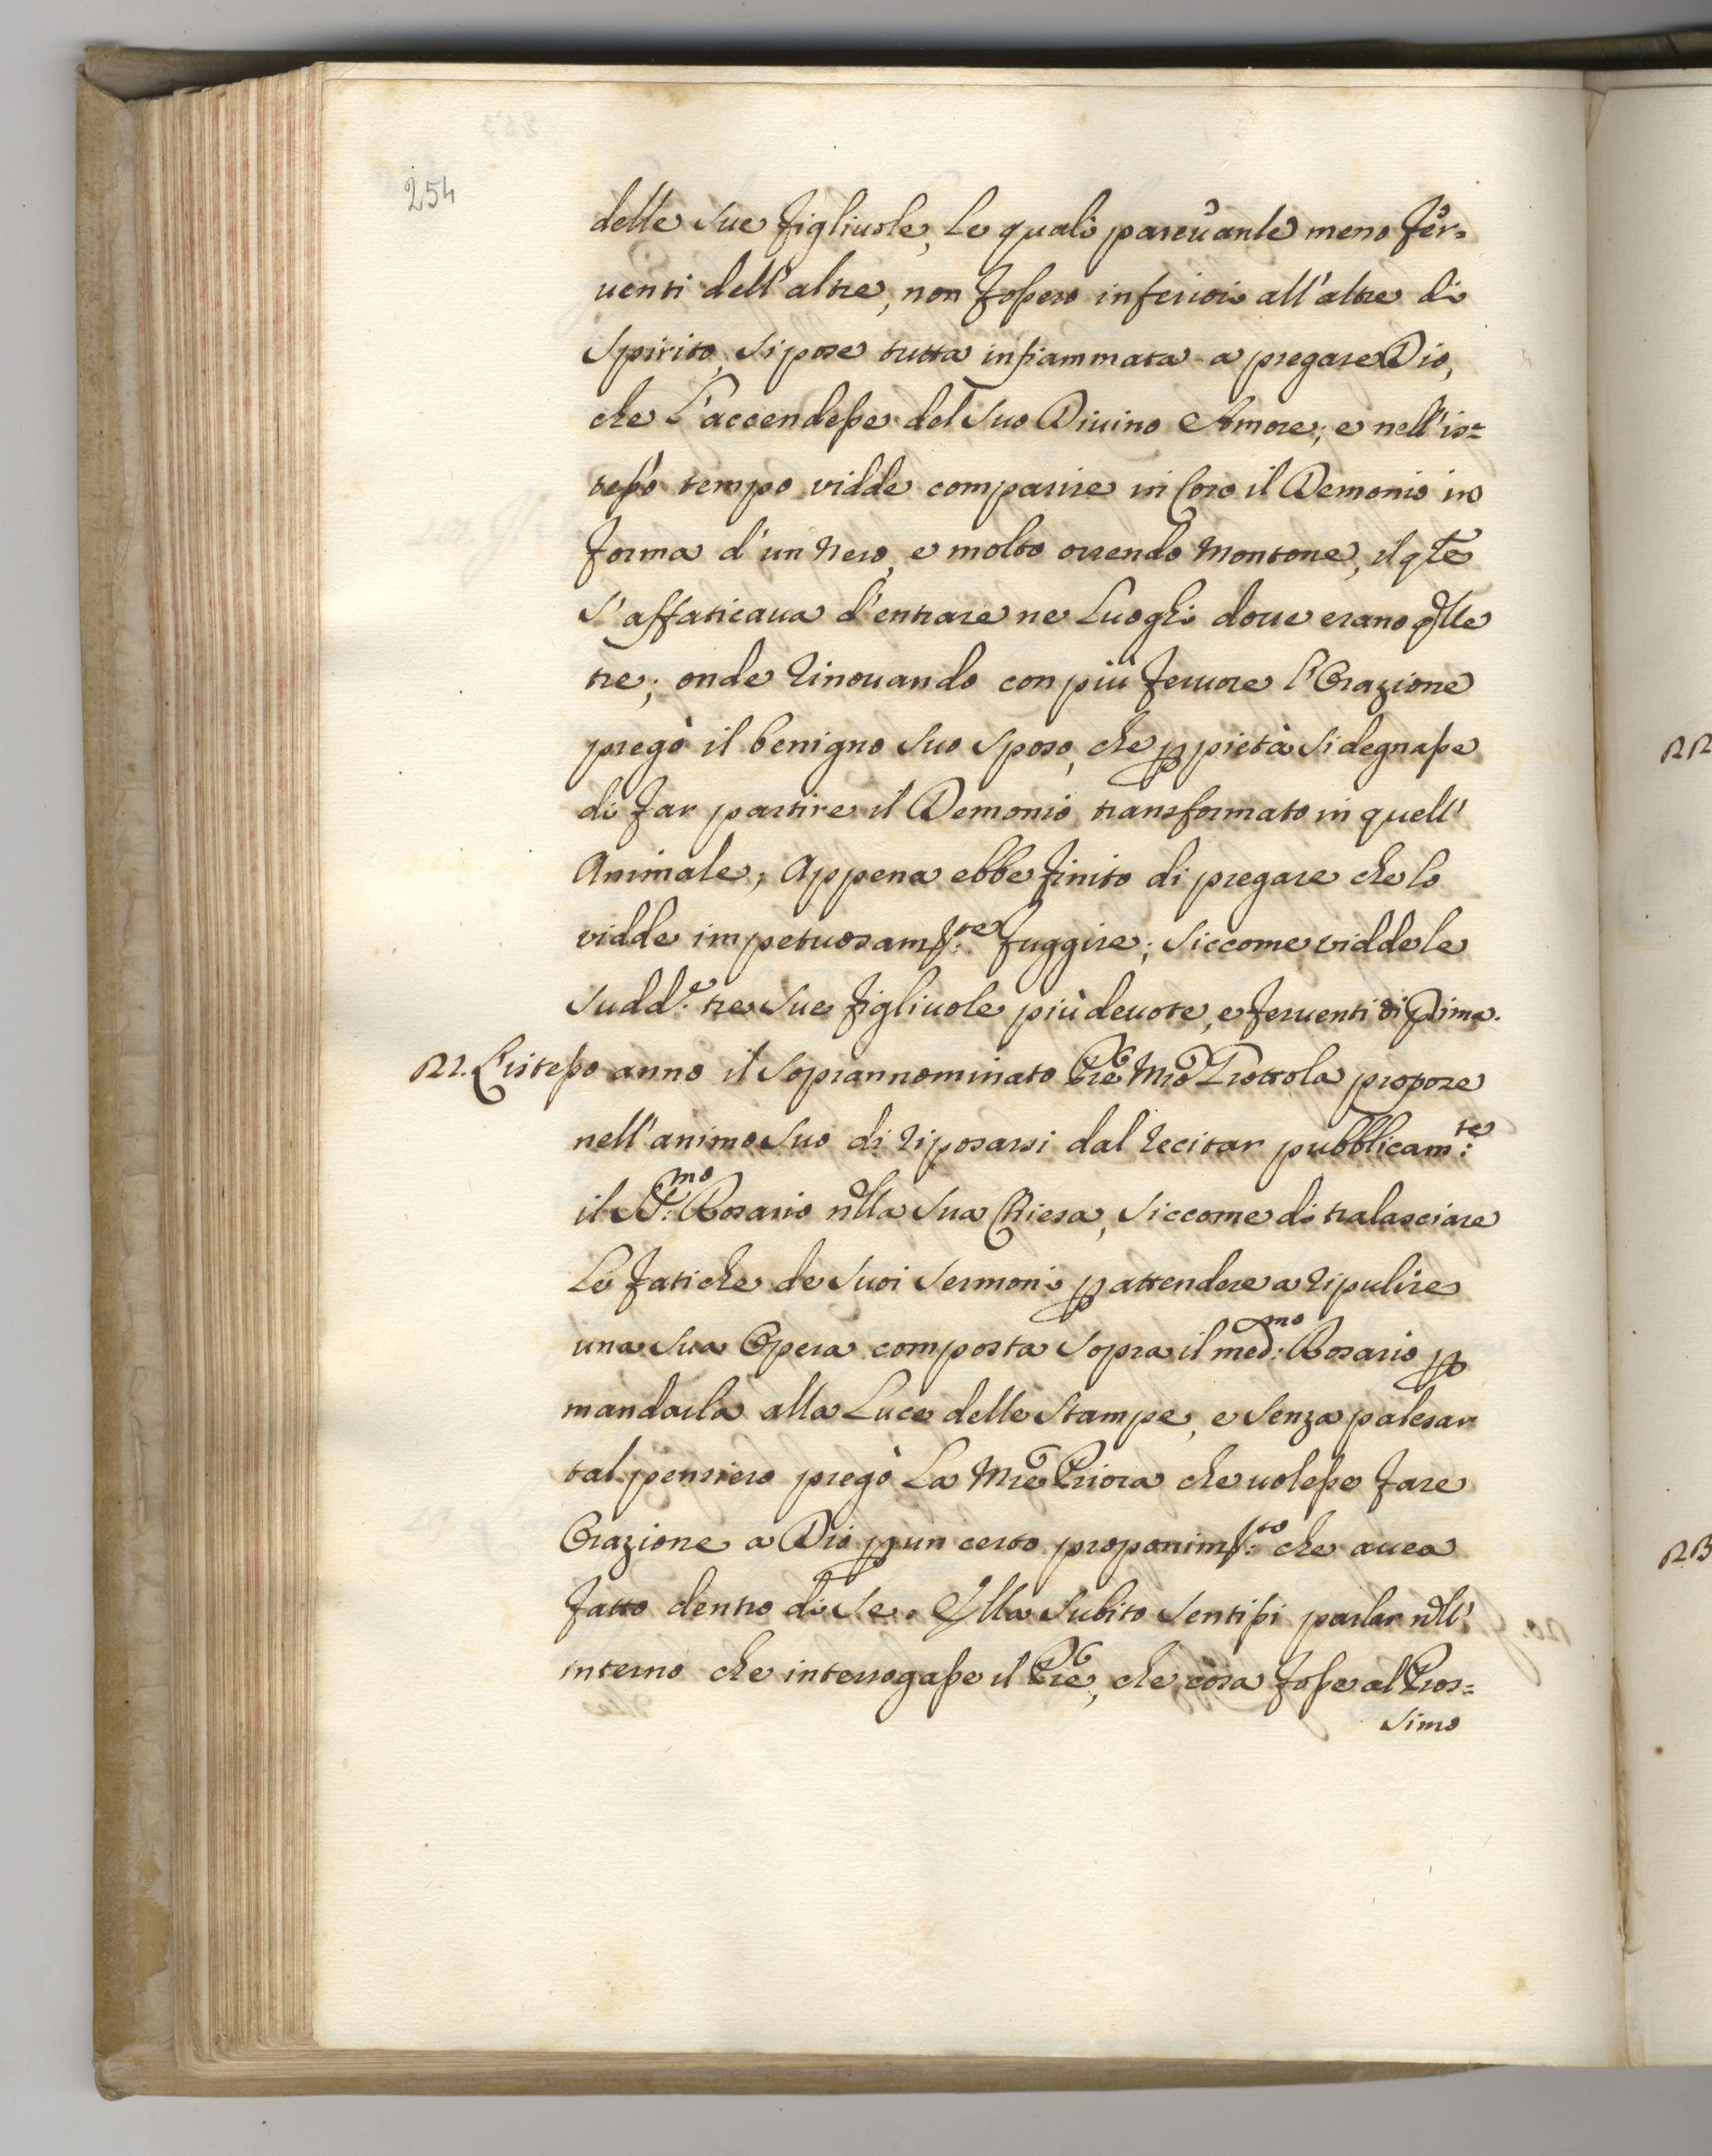 254
delle sue figliuole, le quali pareuanle meno fer=
uenti dell'altre, non fossero inferiori all'altre di
spirito, si pose tutta infiammata a pregare Dio,
che l'accendesse del suo Diuino Amore; e nell'is=
tesso tempo vidde comparire in Coro il Demonio in
forma d'un nero, e molto orrendo Montone, il qle
s'affaticaua d'entrare ne luoghi doue erano qlle
tre; onde rinouando con più feruore l'Orazione
pregò il benigno suo sposo, che p pietà si degnasse
di far partire il Demonio transformato in quell'
Animale; Appena ebbe finito di pregare che lo
vidde impetuosam:te fuggire; siccome vidde le
sudd:e tre sue figliuole più deuote, e feruenti di prima.
22. L'istesso anno il soprannominato Pre Mro Trottola propose
nell'animo suo di riposarsi dal recitar pubblicam:te
il SS:mo Rosario nlla sua Chiesa, siccome di tralasciare
le fatiche de suoi sermoni p attendere a ripulire
una sua Opera composta sopra il med:mo Rosario p
mandarla alla Luce delle stampe, e senza palesar
tal pensiero pregò la Mre Priora che uolesse fare
Orazione a Dio p un certo proponim:to che auea
fatto dentro di se. Ella subito sentissi parlar nll'
interno che interrogasse il Pre, che cosa fosse al Pros=
simo